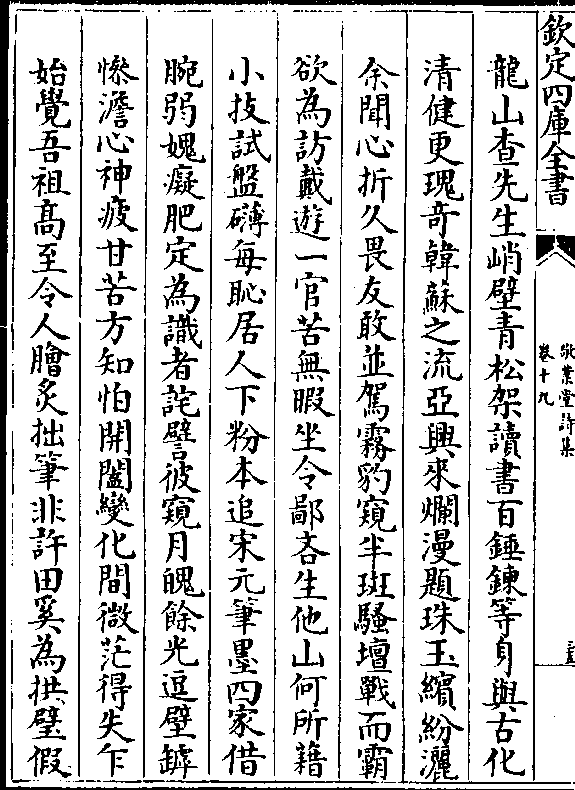 欽定四庫全書
敬業堂詩集
卷十九
龍山查先生峭壁青松架讀書百錘鍊等身與古化
清健更瑰奇韓蘇之流亞興來爛漫題珠玉繽紛灑
余聞心折久畏友敢並駕霧豹窺半斑騷壇戰而霸
欲為訪戴遊一官苦無暇坐令鄙吝生他山何所藉
小技試盤礴每恥居人下粉本追宋元筆墨四家借
腕弱媿癡肥定為識者詫譬彼窺月魄餘光逗壁罅
慘澹心神疲甘苦方知怕開闔變化間微茫得失乍
始覺吾祖高至今人膾炙拙筆非許田奚為拱璧假